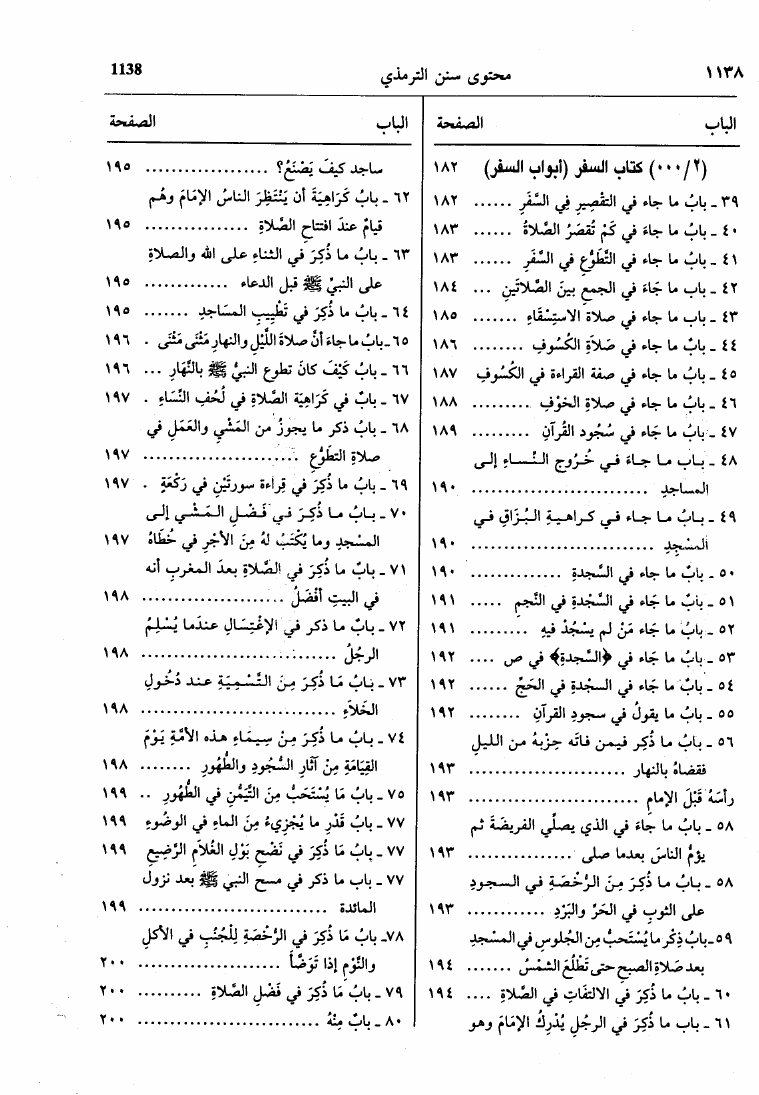 ١١٣٨
محتوى سنن الترمذي
1138
الباب الصفحة
(٠٠٠/٢) كتاب السفر (أبواب السفر) ١٨٢
٣٩ ـ بابُ ما جاء في التقْصِيرِ فِي السَّفَرِ ...... ١٨٢
٤٠ ـ بابُ ما جاءَ في كَمْ تُقصَرُ الصَّلاةُ ...... ١٨٣
٤١ ـ بابُ ما جاء في التَّطَوُّعِ في السَّفَرِ ...... ١٨٣
٤٢ ـ بابُ ما جَاءَ في الجمعِ بينَ الصَّلاتَينِ ... ١٨٤
٤٣ ـ بابُ ما جاء في صلاة الاستِسْقَاءِ ....... ١٨٥
٤٤ ـ بابُ ما جاء في صَلاَةِ الكُسُوفِ ......... ١٨٦
٤٥ ـ بابُ ما جاء في صفة القراءة في الكُسُوفِ ١٨٧
٤٦ ـ بابُ ما جاء في صلاةِ الخَوْفِ ......... ١٨٨
٤٧ ـ بابُ ما جَاء في سُجُود القُرآنِ ......... ١٨٩
٤٨ ـ بـاب مـا جـاءَ فـي خُـرُوج النِّـسـاءِ إلـى
المساجدِ .......................... ١٩٠
٤٩ ـ بـابُ مـا جـاء فـي كـراهـيـةِ البُـزَاقِ فـي
المسْجِدِ ........................... ١٩٠
٥٠ ـ بابُ ما جاء في السَّجدةِ ............. ١٩٠
٥١ ـ بابُ ما جَاء في السَّجْدةِ في النَّجمِ ..... ١٩١
٥٢ ـ بابُ ما جَاءَ مَنْ لم يسْجُدْ فيهِ ......... ١٩١
٥٣ ـ بابُ ما جَاءَ في ﴿السَّجدة﴾ في ص .... ١٩٢
٥٤ ـ بابُ ما جَاءَ في السجْدةِ في الحَجِّ ...... ١٩٢
٥٥ ـ بابُ ما يقولُ في سجودِ القرآنِ ........ ١٩٢
٥٦ ـ بابُ ما ذُكِر فيمن فاتَه حِزْبهُ من الليلِ
فقضاهُ بالنهار ....................... ١٩٣
رأسَهُ قَبْلَ الإمامِ ......................... ١٩٣
٥٨ ـ بابُ ما جاءَ في الذي يصلِّي الفريضَةَ ثم
يؤمُّ الناسَ بعدما صلى ................ ١٩٣
٥٨ ـ بـابُ مـا ذُكِـرَ مِـنَ الرُّخْصَةِ فـي السـجـودِ
على الثوبِ في الحَرِّ والبَرْدِ ............ ١٩٣
٥٩ـبابُ ذِكْرِ ما يُسْتَحبُّ مِن الجُلوسِ في المسْجدِ
بعد صَلاةِ الصبح حتى تَطْلُعَ الشمْسُ ....... ١٩٤
٦٠ ـ بابُ ما ذُكِرَ في الالتفَاتِ في الصَّلاةِ .... ١٩٤
٦١ ـ باب ما ذُكِرَ في الرجُلِ يُدْرِكُ الإمَامَ وهو
الباب الصفحة
ساجد كيفَ يَصْنَعُ؟ ................... ١٩٥
٦٢ ـ بابُ كَرَاهِيَةَ أن يَنْتَظِرَ الناسُ الإمَامَ وهُم
قيامٌ عندَ افتتاحِ الصَّلاةِ ................ ١٩٥
٦٣ ـ بابُ ما ذُكِرَ في الثناءِ على الله والصلاةِ
على النبيِّ ﷺ قبل الدعاء ............. ١٩٥
٦٤ ـ بابُ ما ذُكِرَ في تَطْيِيبِ المسَاجدِ ....... ١٩٥
٦٥ـبابُ ما جاءَ أنَّ صلاةَ اللَّيْلِ والنهارِ مَثْنَى مَثْنَى . ١٩٦
٦٦ ـ بابُ كَيْفَ كانَ تطوع النبيُّ ﷺ بالنَّهَارِ ... ١٩٦
٦٧ ـ بابٌ في كَرَاهِيَة الصَّلاةِ في لُحُفِ النِّسَاءِ . ١٩٧
٦٨ ـ بابُ ذكر ما يجوزُ من المَشْي والعَمَلِ في
صلاةِ التطوُّعِ ........................ ١٩٧
٦٩ ـ بابُ ما ذُكِرَ في قِراءة سورتَيْنِ في رَكْعَةٍ . ١٩٧
٧٠ ـ بـابُ مـا ذُكِـرَ فـي فَـضْـلِ الـمَـشْـي إلـى
المسْجدِ وما يُكْتَبُ لهُ مِنَ الأجْرِ في خُطَاهُ ١٩٧
٧١ ـ بابُ ما ذُكِرَ في الصَّلاةِ بعدَ المغربِ أنه
في البيتِ أفْضَلُ ..................... ١٩٨
٧٢ ـ بابُ ما ذكر في الإغْتِسَالِ عندَما يُسْلِمُ
الرجُلُ ............................. ١٩٨
٧٣ ـ بـابُ مَا ذُكِرَ مِنَ التَّسْمِيَةِ عند دُخُولِ
الخَلاَءِ ............................. ١٩٨
٧٤ ـ بـابُ مـا ذُكِرَ مِـنْ سِيـمَـاءِ هـذه الأمَّةِ يَوْمَ
القِيَامَةِ مِنْ آثَارِ السُّجُودِ والطُّهُورِ ........ ١٩٨
٧٥ ـ بابُ مَا يُسْتَحَبُّ مِنَ التَّيَمُّنِ في الطُّهُورِ .. ١٩٩
٧٧ ـ بابُ قَدْرِ ما يُجْزِيءُ مِنَ الماءِ في الوضُوءِ ١٩٩
٧٧ ـ بابُ مَا ذُكِرَ في نَضْحِ بَوْلِ الغُلاَمِ الرَّضِيعِ ١٩٩
٧٧ ـ باب ما ذكر في مسح النبي ﷺ بعد نزول
المائدة ............................ ١٩٩
٧٨ـ بابُ مَا ذُكِرَ في الرُّخصَةِ لِلْجُنُبِ في الأكلِ
والنَّوْمِ إذَا تَوَضَّأَ ..................... ٢٠٠
٧٩ ـ بابُ مَا ذُكِرَ في فَضْلِ الصَّلاةِ .......... ٢٠٠
٨٠ ـ بابٌ مِنْهُ ........................... ٢٠٠